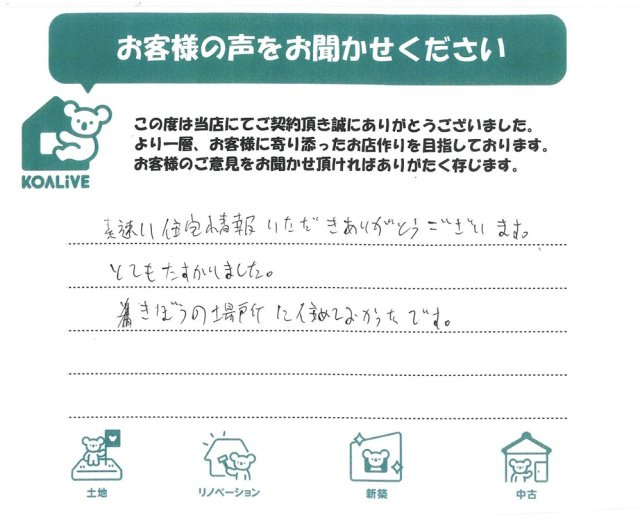 お客様の声をお聞かせください
この度は当店にてご契約頂き誠にありがとうございました。
より一層、お客様に寄り添ったお店作りを目指しております。
お客様のご意見をお聞かせ頂ければありがたく存じます。
KOALiVE
素速い住宅情報いただきありがとうございます。
とてもたすかりました。
きぼうの場所に住めてよかったです。
土地
リノベーション
新築
中古